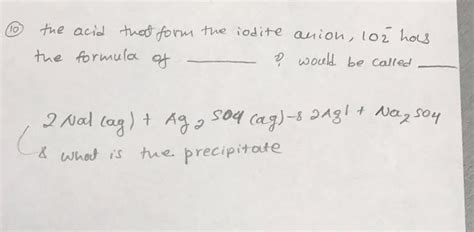 10 the acid that form the iodite anion, IO2⁻ has
the formula of ______ ? would be called ____
2 NaI (aq) + Ag2 SO4 (aq) → 2AgI + Na2SO4
& what is the precipitate